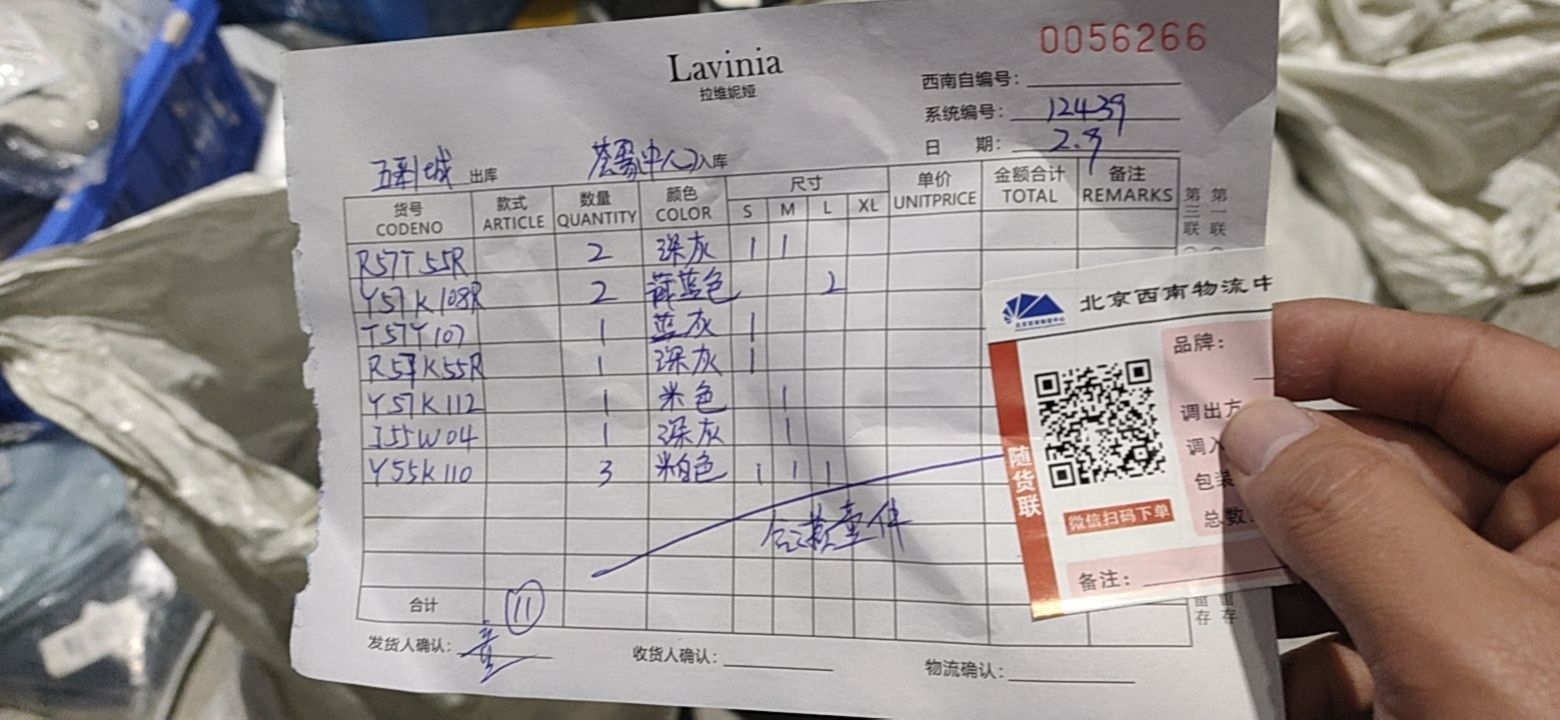 0056266
Lavinia
拉维妮娅
西南自编号:
系统编号: 12439
日 期: 2.9
出库 入库
货号 款式 数量 颜色 尺寸 单价 金额合计 备注
CODENO ARTICLE QUANTITY COLOR S M L XL UNITPRICE TOTAL REMARKS
R57T55R 2 深灰 1 1
Y57K108R 2 蓝色 2
T57Y107 1 蓝灰 1
R57K55R 1 深灰 1
Y57K112 1 米色 1
J55W04 1 深灰 1
Y55K110 3 米白色 1 1 1
合计 11
发货人确认: 收货人确认: 物流确认:
第一联
第三联
留存
留存
北京西南物流中
随货联
微信扫码下单
品牌:
调出方
调入
包装
总数
备注: